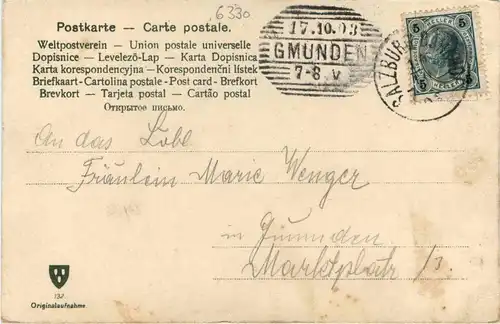 6330
Postkarte — Carte postale.
Weltpostverein — Union postale universelle
Dopisnice — Levelező-Lap — Karta Dopisnica
Karta korespondencyjna — Korespondenční lístek
Briefkaart - Cartolina postale - Post card - Brefkort
Brevkort — Tarjeta postal — Cartão postal
Открытое письмо.
17.10.03
GMUNDEN
7-8 V
SALZBUR
5 5
HELLER
An das Löbl
Fräulein Marie Wenger
in Gmunden
Marktplatz 13.
132
Originalaufnahme